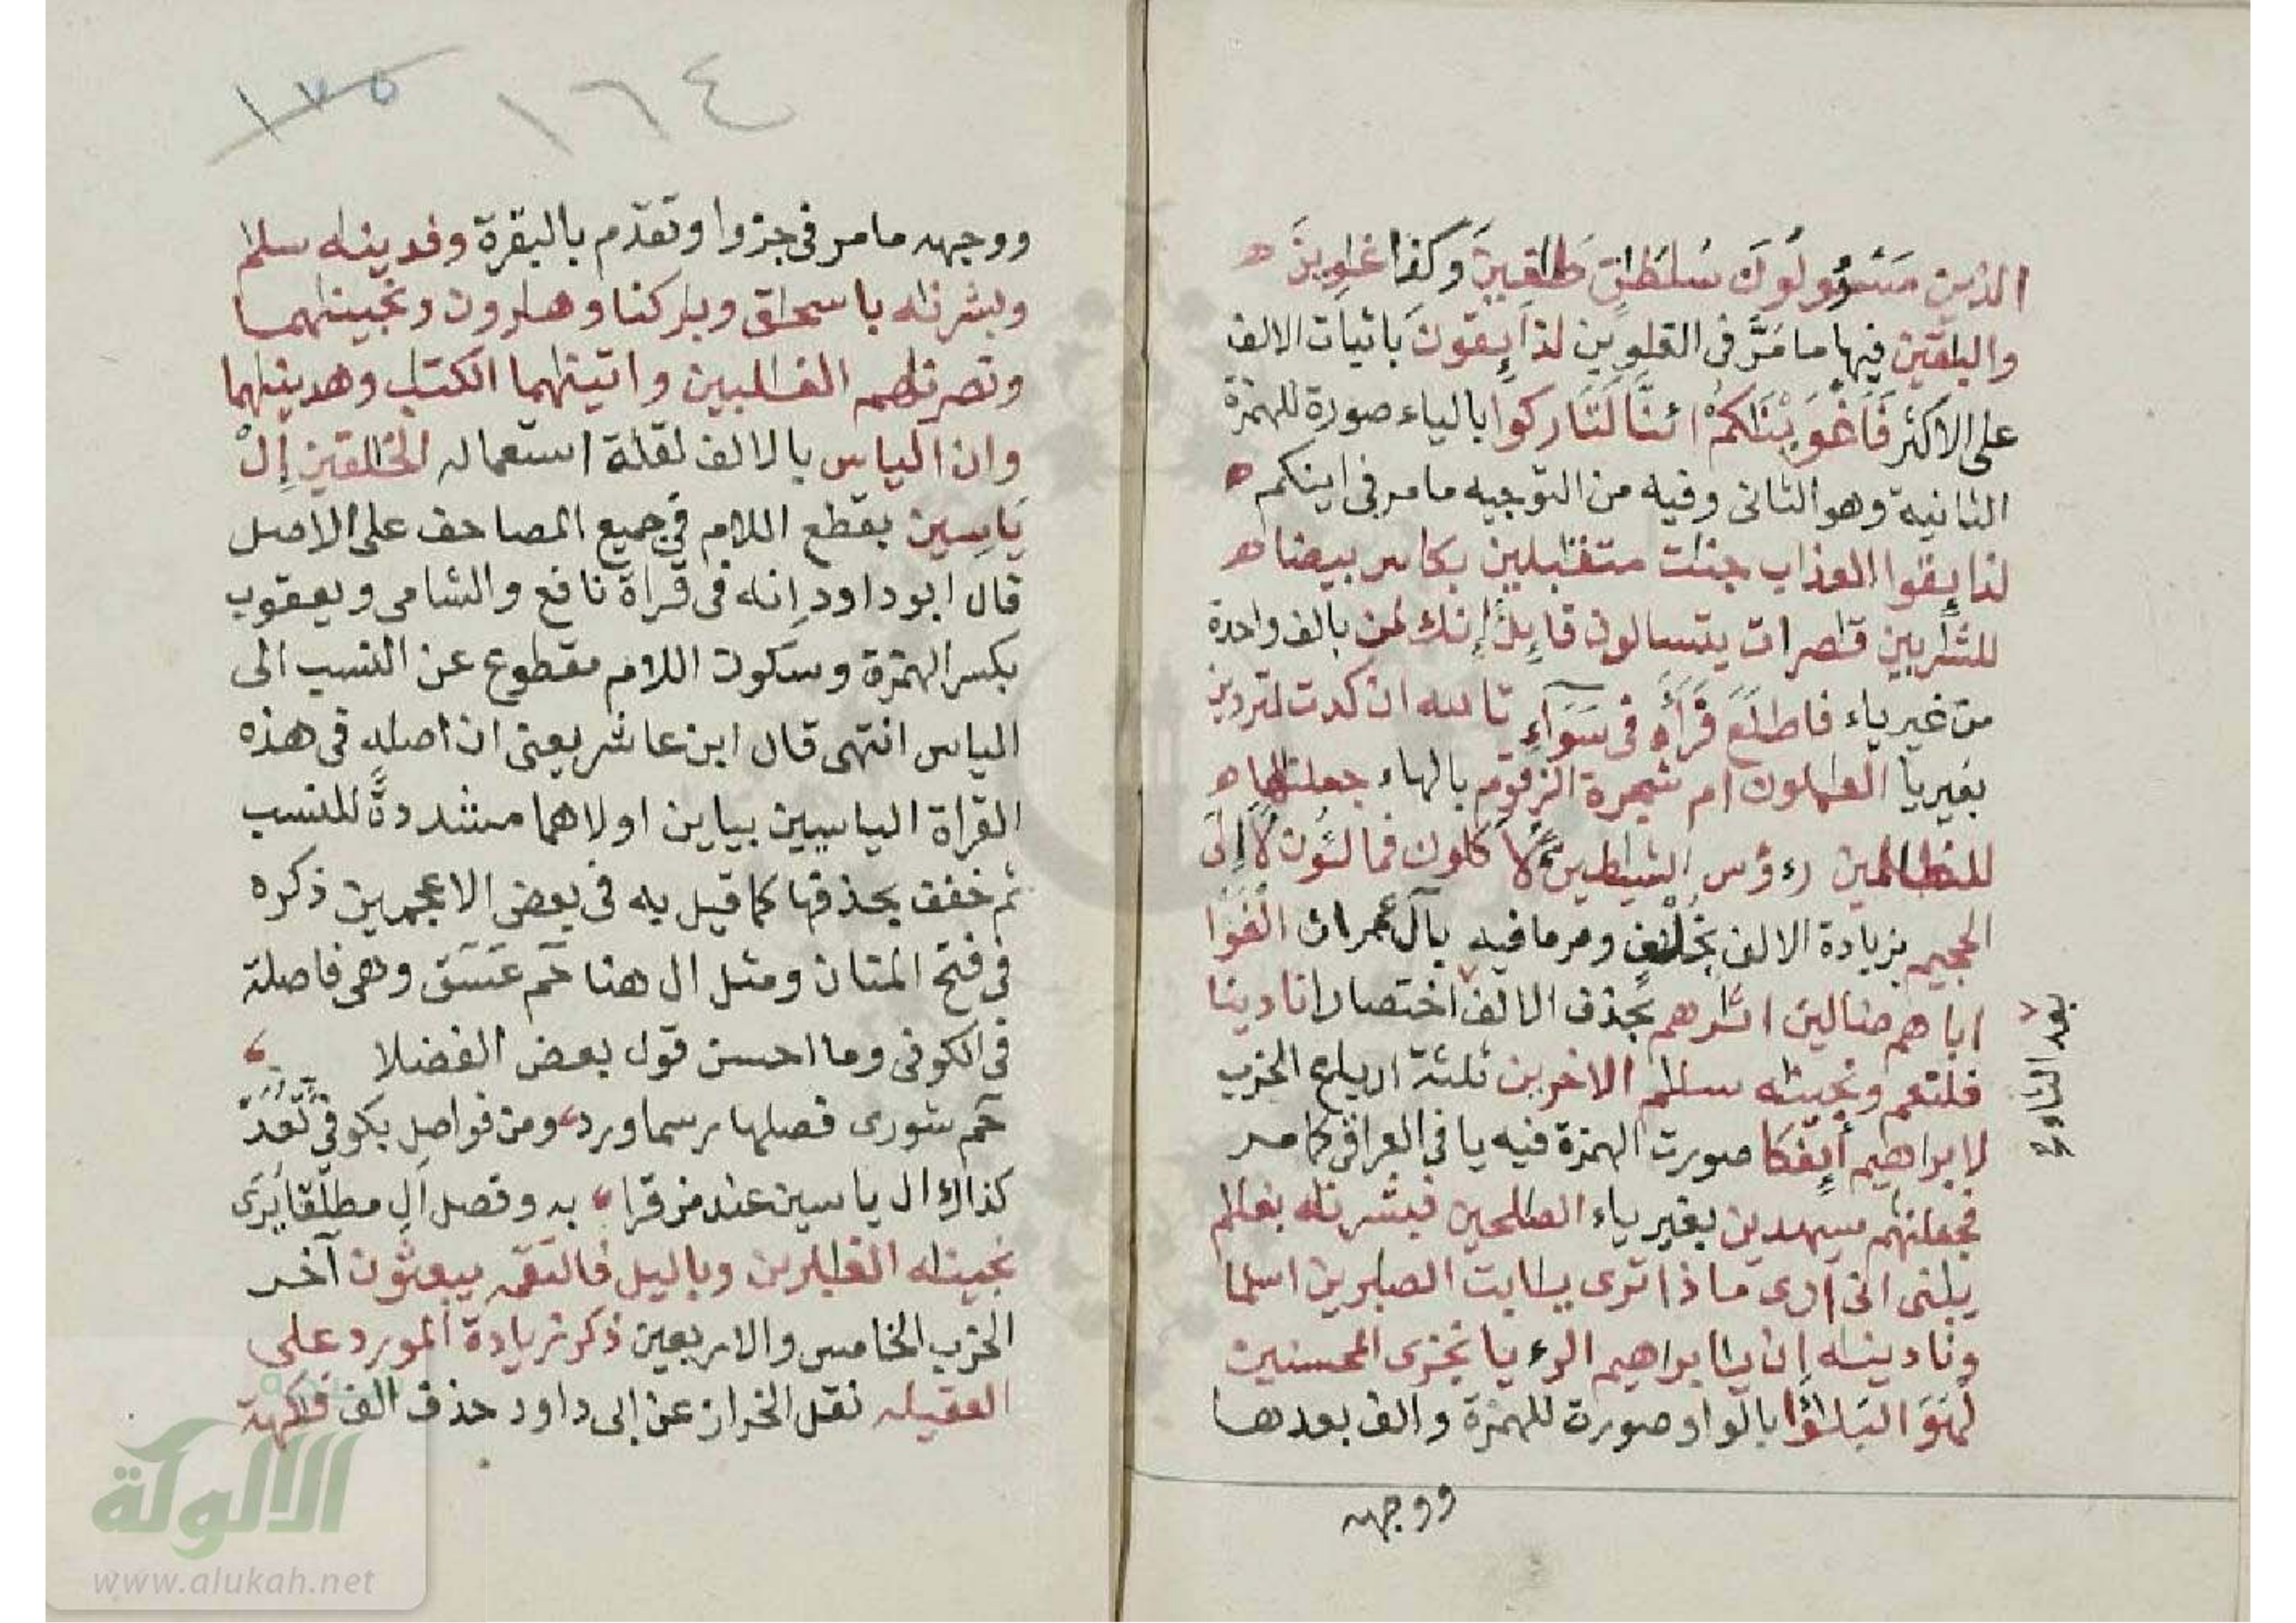 الذين مَسْـُٔولُونَ سُلطٰنٍ طٰغِينَ وكذا غٰوِينَ ھ
والبٰقين فيها ما مَرَّ في القٰوين لذآئِقُونَ باثبات الالف
على الاكثر فَأَغْوَيْنَٰكُمْ ائنّا لَتَاركوا بالياء صورة للهمزة
الثانية وهو الثاني وفيه من التوجيه ما مر في اينكم ھ
لذايقوا العذاب جنٰت متقٰبلين بكاس بيضا ھ
للشّٰربين قٰصرات يتسالون قايلٌ إنك لمن بالف واحدة
من غير ياء فاطلَعَ فَرَءَاهُ في سَوَآءِ تالله ان كدت لتردين
بغير يا العٰملون ام شجرة الزقوم بالهاء جعلنٰها ھ
للظٰلمين رءوس الشيٰطين لَأ كلون فمالـُٔون لَا إِلَى
الجحيم بزيادة الالف بخُلْفٍ ومر ما فيه بآل عمران الفَوْا
اباهم ضالين اثٰرهم بحذف الالف اختصارا نادينا
بعد الثاء صح
فلنعم ونجينٰه سلٰم الاخرين ثلثة ارباع الحزب
لابراهيم أَئِفْكا صورت الهمزة فيه يا في العراقي كما مر
فجعلنٰهم سيهدين بغير ياء الصٰلحين فبشرنٰه بغلٰم
يٰبنى انى أرى ماذا ترى يٰابت الصٰبرين اسلما
ونادينٰه ان يٰابراهيم الرءيا نجزى المحسنين
لَهُوَ البَلٰؤا بالواو صورة للهمزة والف بعدها
ووجهه
١٦٤ ١٧٥
ووجهه ما مر في جزوا وتقدم بالبقرة وفدينٰه سلٰم
وبشرنٰه باسحٰق وبٰركنا وهٰرون ونجينٰهما
ونصرنٰهم الغٰلبين واتينٰهما الكتٰب وهدينٰهما
وان الياس بالالف لقلة استعماله الخٰلقين إِلْ
يَاسِين بقطع اللام في جميع المصاحف على الاصل
قال ابو داود إنه في قراة نافع والشامي ويعقوب
بكسر الهمزة وسكون اللام مقطوع عن النسب الى
الياس انتهى قال ابن عاشر يعني ان اصله في هذه
القراة الياسيين بياين اولاهما مشددةً للنسب
ثم خفف بحذفها كما قيل به في بعض الاعجمين ذكره
في فتح المنان ومثل ال هنا حٓم عٓسٓقٓ وهي فاصلة
في الكوفي وما احسن قول بعض الفضلا
حٓم شورى فصلها رسما ورد ومن فواصل بكوفي تُعَدّ
كذاك ال ياسين عند من قرا به وفصل آل مطلقا يَرَى
نجينٰه الغٰبرين وباليل فالتقمه يبعثون آخر
الحزب الخامس والاربعين ذكر زيادة المورد على
العقيله نقل الخراز عن ابى داود حذف الف فٰكهة
الألوكة
www.alukah.net